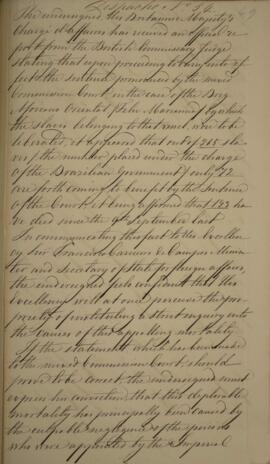 Despacho Nº 54
The undersigned, His Britannic Majesty's
Chargé d'Affaires has received an official re-
port from the British Commissary Judge
stating that upon proceeding to carry into ef-
fect the sentence pronounced by the mixed
Commission Court, in the case of the Brig
Africano Oriental by which
the slaves belonging to that vessel were to be
liberated, it appeared that out of 265 sla-
ves (the number placed under the charge
of the Brazilian Government) only 72
are forthcoming to benefit by the Sentence
of the Court, it being affirmed that 193 ha-
ve died since the 9th September last
In communicating this fact to His Excellen-
cy Senr Francisco Carneiro de Campos Minis-
ter and Secretary of State for foreign affairs,
the undersigned feels confident that His
Excellency will at once perceive the pro-
priety of instituting a strict enquiry into
the Causes of this appelling mortality.
If the statement which has been made
to the mixed Commission Court should
prove to be correct, the undersigned must
express his conviction that this deplorable
mortality has principally been caused by
the culpable negligence of the persons
who were appointed by the Imperial